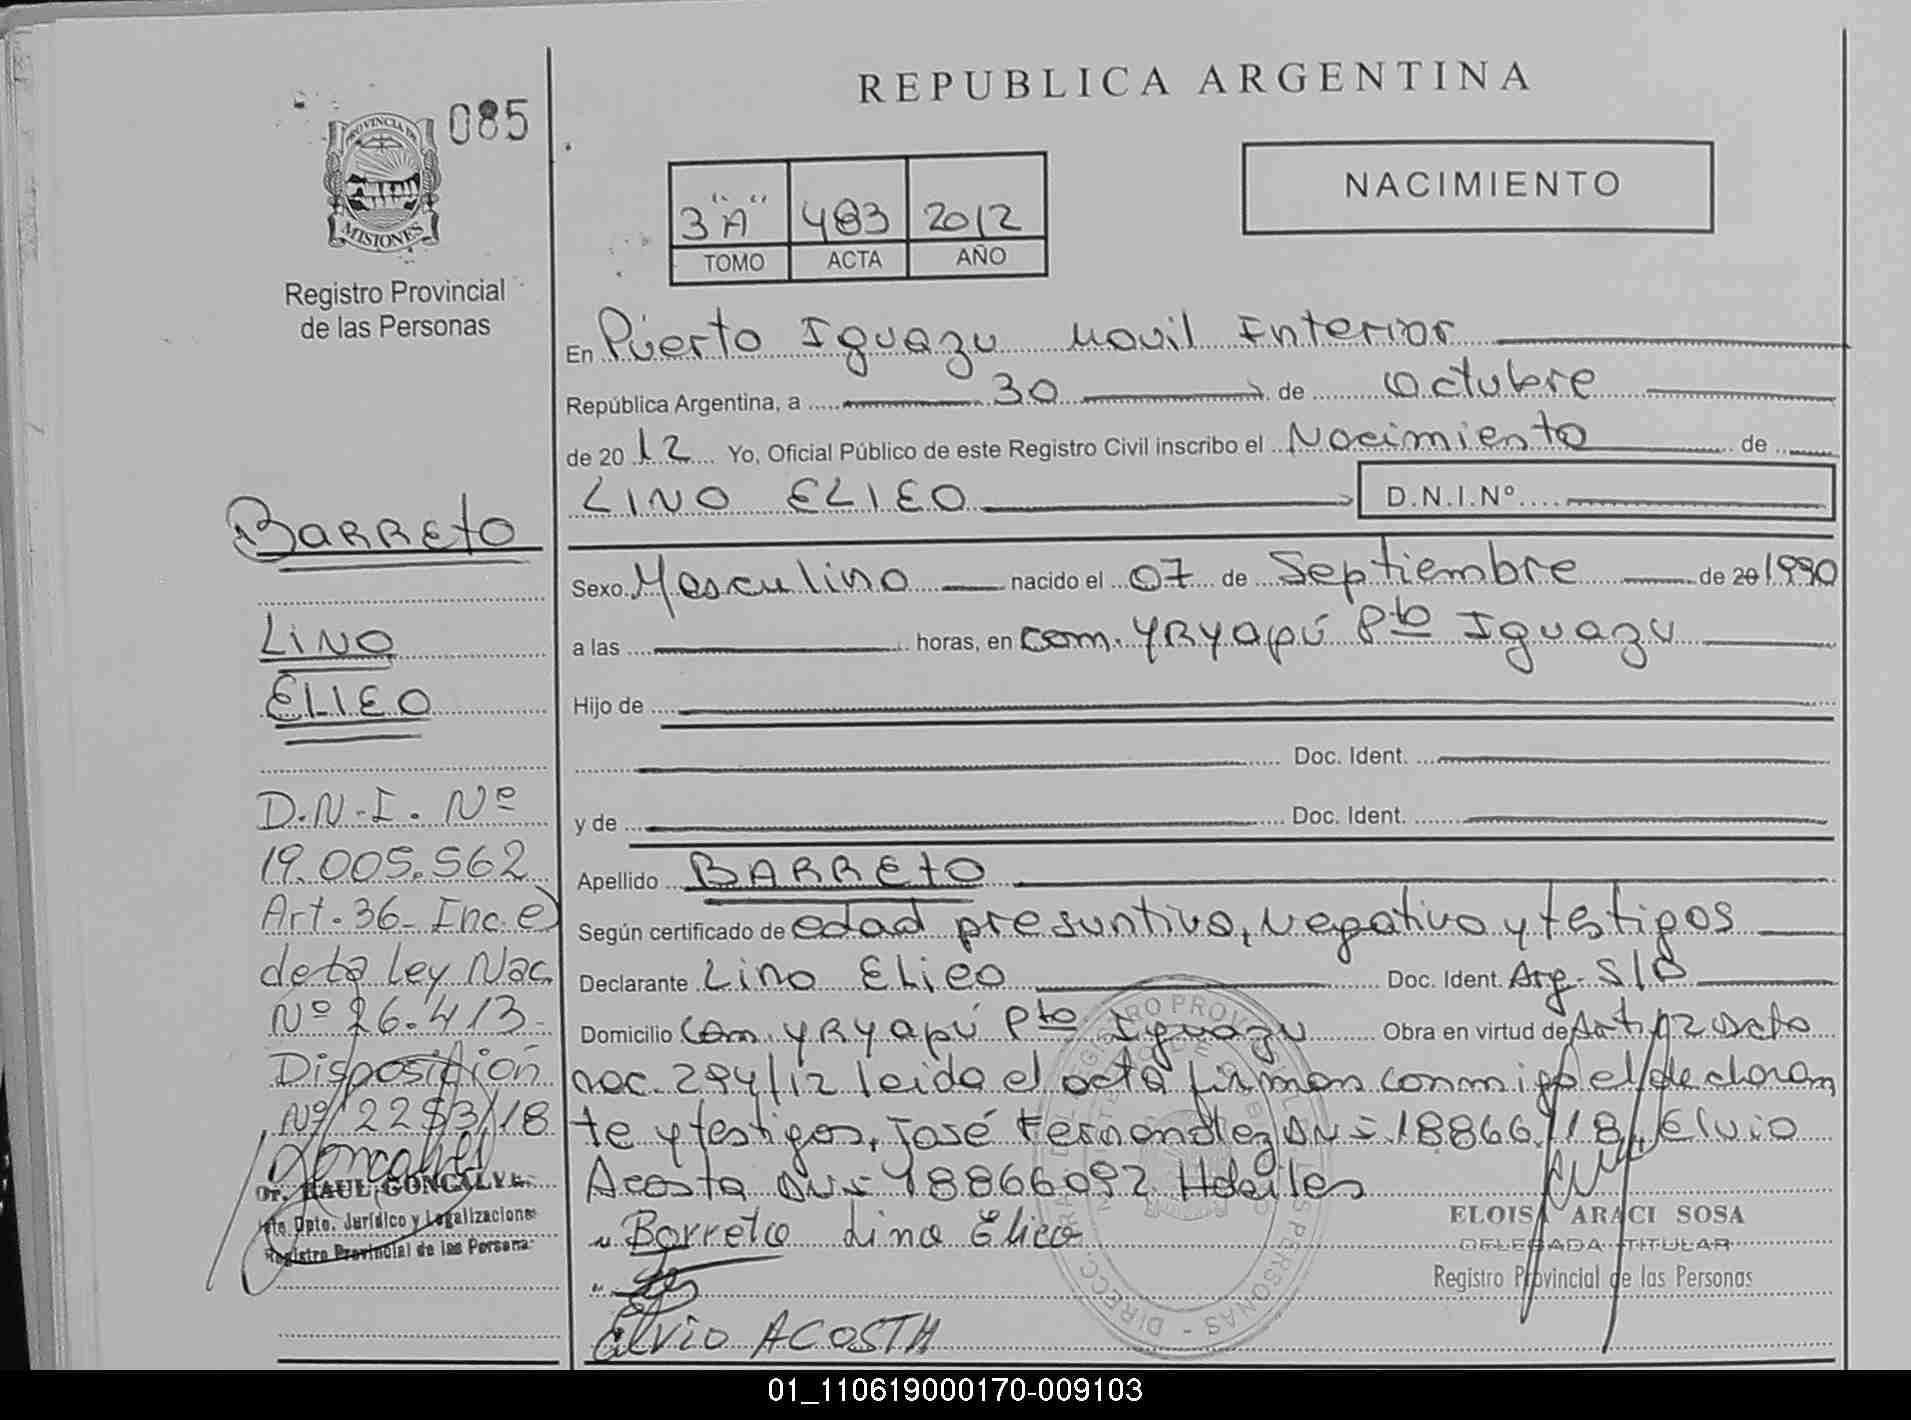 REPUBLICA ARGENTINA
085
PROVINCIA DE
MISIONES
Registro Provincial
de las Personas
NACIMIENTO
3 "A" 483 2012
TOMO ACTA AÑO
En Puerto Iguazu Movil Interior
República Argentina, a 30 de Octubre
de 2012 Yo, Oficial Público de este Registro Civil inscribo el Nacimiento de
LINO ELIEO D.N.I.Nº
Sexo Masculino nacido el 07 de Septiembre de 20 1990
a las horas, en Com. YRYapú Pto Iguazu
Hijo de
Doc. Ident.
y de Doc. Ident.
Apellido BARRETO
Según certificado de edad presuntiva, negativo y testigos
Declarante Lino Elieo Doc. Ident. Arg. S/D
Domicilio Com. YRYapú Pto Iguazu Obra en virtud de Art. 92 Dcto
nac. 294/12 leida el acta firman conmigo el declaran
te y testigos, José Fernandez DNI 18866.118, Elvio
Acosta DNI 18866092 Habiles
Barreto Lino Elieo
Elvio ACOSTA
ELOISA ARACI SOSA
DELEGADA TITULAR
Registro Provincial de las Personas
BARRETO
LINO
ELIEO
D.N.I. Nº
19.005.562
Art. 36 - Inc. e)
de la Ley Nac
Nº 26.413.
Disposición
Nº 2253/18
Dr. RAUL GONCALVES
Jefe Dpto. Jurídico y Legalizaciones
Registro Provincial de las Personas
01_110619000170-009103